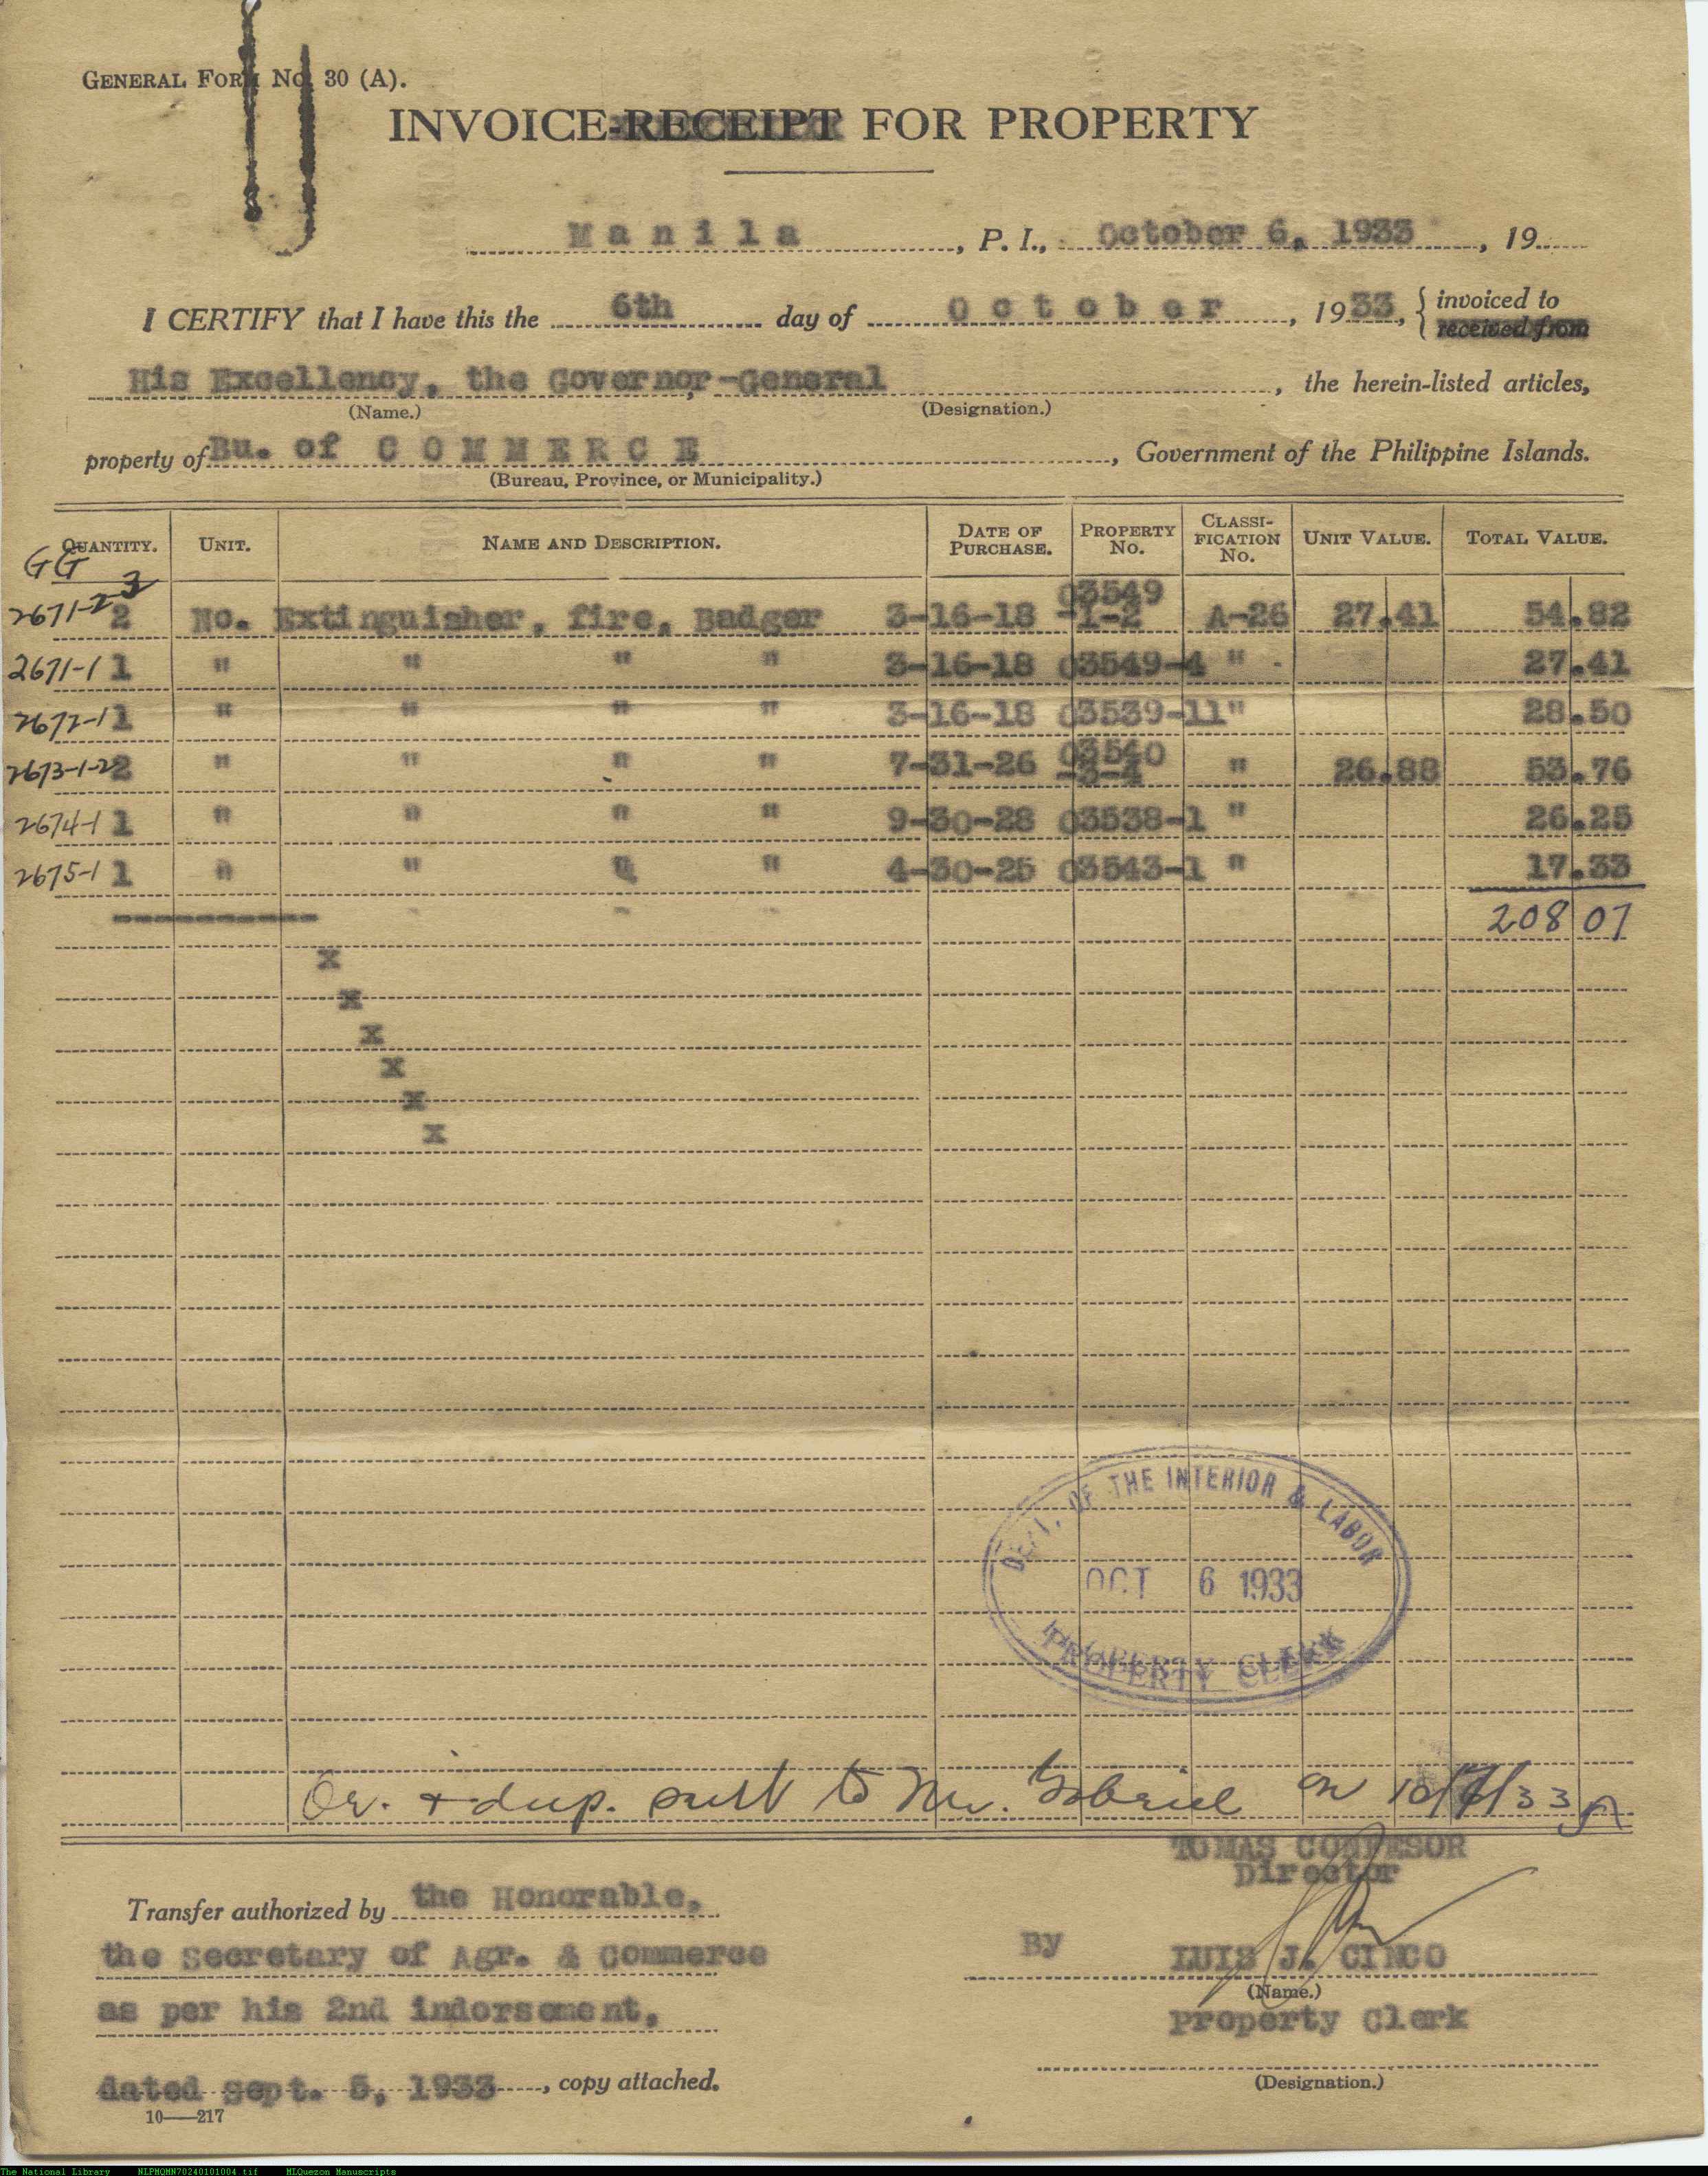 GENERAL FORM No. 30 (A).
INVOICE-RECEIPT FOR PROPERTY
Manila, P. I., October 6, 1933, 19
I CERTIFY that I have this the 6th day of October, 1933, { invoiced to
received from
His Excellency, the Governor-General, the herein-listed articles,
(Name.) (Designation.)
property of Bu. of COMMERCE, Government of the Philippine Islands.
(Bureau, Province, or Municipality.)
QUANTITY. UNIT. NAME AND DESCRIPTION. DATE OF PURCHASE. PROPERTY No. CLASSIFICATION No. UNIT VALUE. TOTAL VALUE.
GG
2671-2-3 2 No. Extinguisher, fire, Badger 3-16-18 03549-1-2 A-26 27.41 54.82
2671-1 1 " " " " 3-16-18 03549-4 " 27.41
2672-1 1 " " " " 3-16-18 03539-11 " 28.50
2673-1-2 2 " " " " 7-31-26 03540-3-4 " 26.88 53.76
2674-1 1 " " " " 9-30-28 03538-1 " 26.25
2675-1 1 " " " " 4-30-25 03543-1 " 17.33
208 07
x
x
x
x
x
x
DEPT. OF THE INTERIOR & LABOR
OCT 6 1933
PROPERTY CLERK
Or. + dup. sent to Mr. Gabriel on 10/6/33
TOMAS CONFESOR
Director
Transfer authorized by the Honorable,
the Secretary of Agr. & Commerce
By LUIS J. CINCO
(Name.)
as per his 2nd indorsement,
Property Clerk
dated Sept. 5, 1933, copy attached.
(Designation.)
10—217
The National Library NLPMQMN70240101004.tif MLQuezon Manuscripts